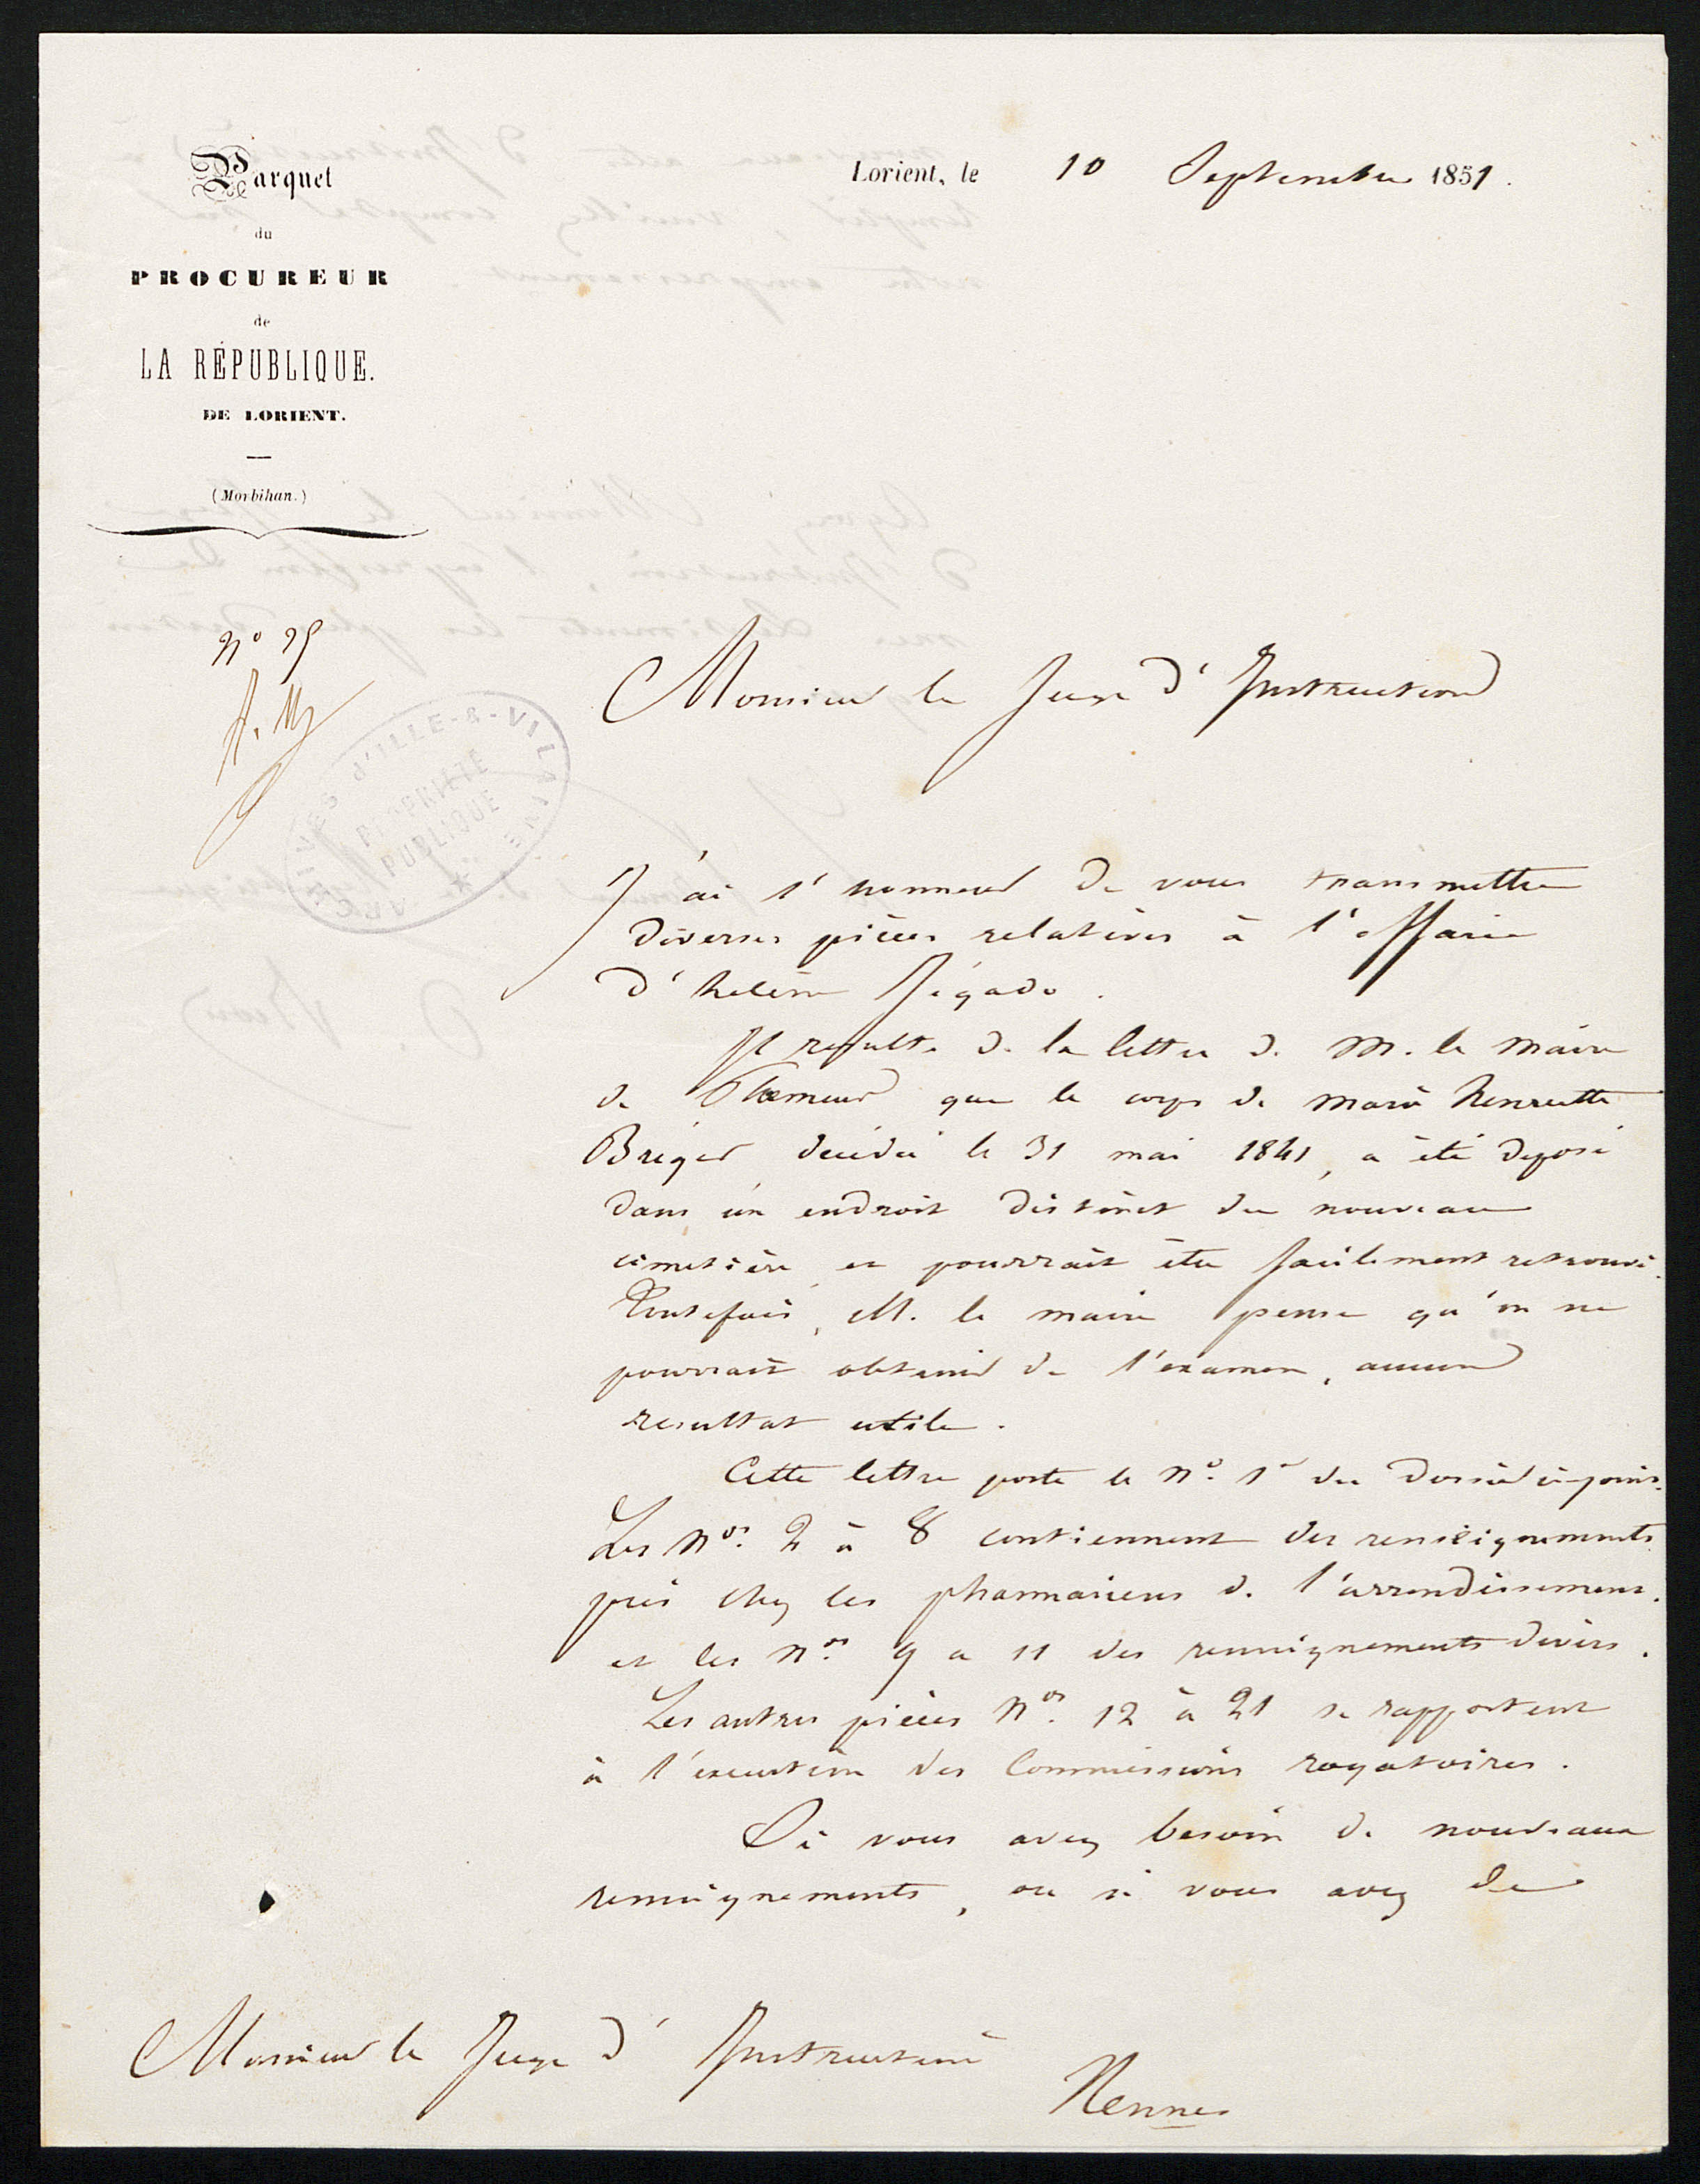 Parquet
du
PROCUREUR
de
LA RÉPUBLIQUE.
DE LORIENT.
(Morbihan.)
Lorient, le 10 Septembre 1851.
N° 25
ARCHIVES d'ILLE-&-VILAINE
PROPRIÉTÉ
PUBLIQUE
Monsieur le Juge d'Instruction
J'ai l'honneur de vous transmettre
diverses pièces relatives à l'affaire
d'hélène Jégado.
Il résulte de la lettre de M. le Maire
de Ploemeur que le corps de marie henriette
Bréger décédée le 31 mai 1841, a été déposé
dans un endroit distinct du nouveau
cimetière et pourrait être facilement retrouvé.
Toutefois, M. le maire pense qu'on ne
pourrait obtenir de l'examen, aucun
resultat utile.
Cette lettre porte le N° 1er du Dossier ci-joint.
Les Nos 2 à 8 contiennent des renseignements
pris chez les pharmaciens de l'arrondissement.
et les Nos 9 a 11 des renseignements divers.
Les autres pièces Nos 12 à 21 se rapportent
à l'execution des Commissions rogatoires.
Si vous avez besoin de nouveaux
renseignements, ou si vous avez de
Monsieur le Juge d'Instruction
Rennes